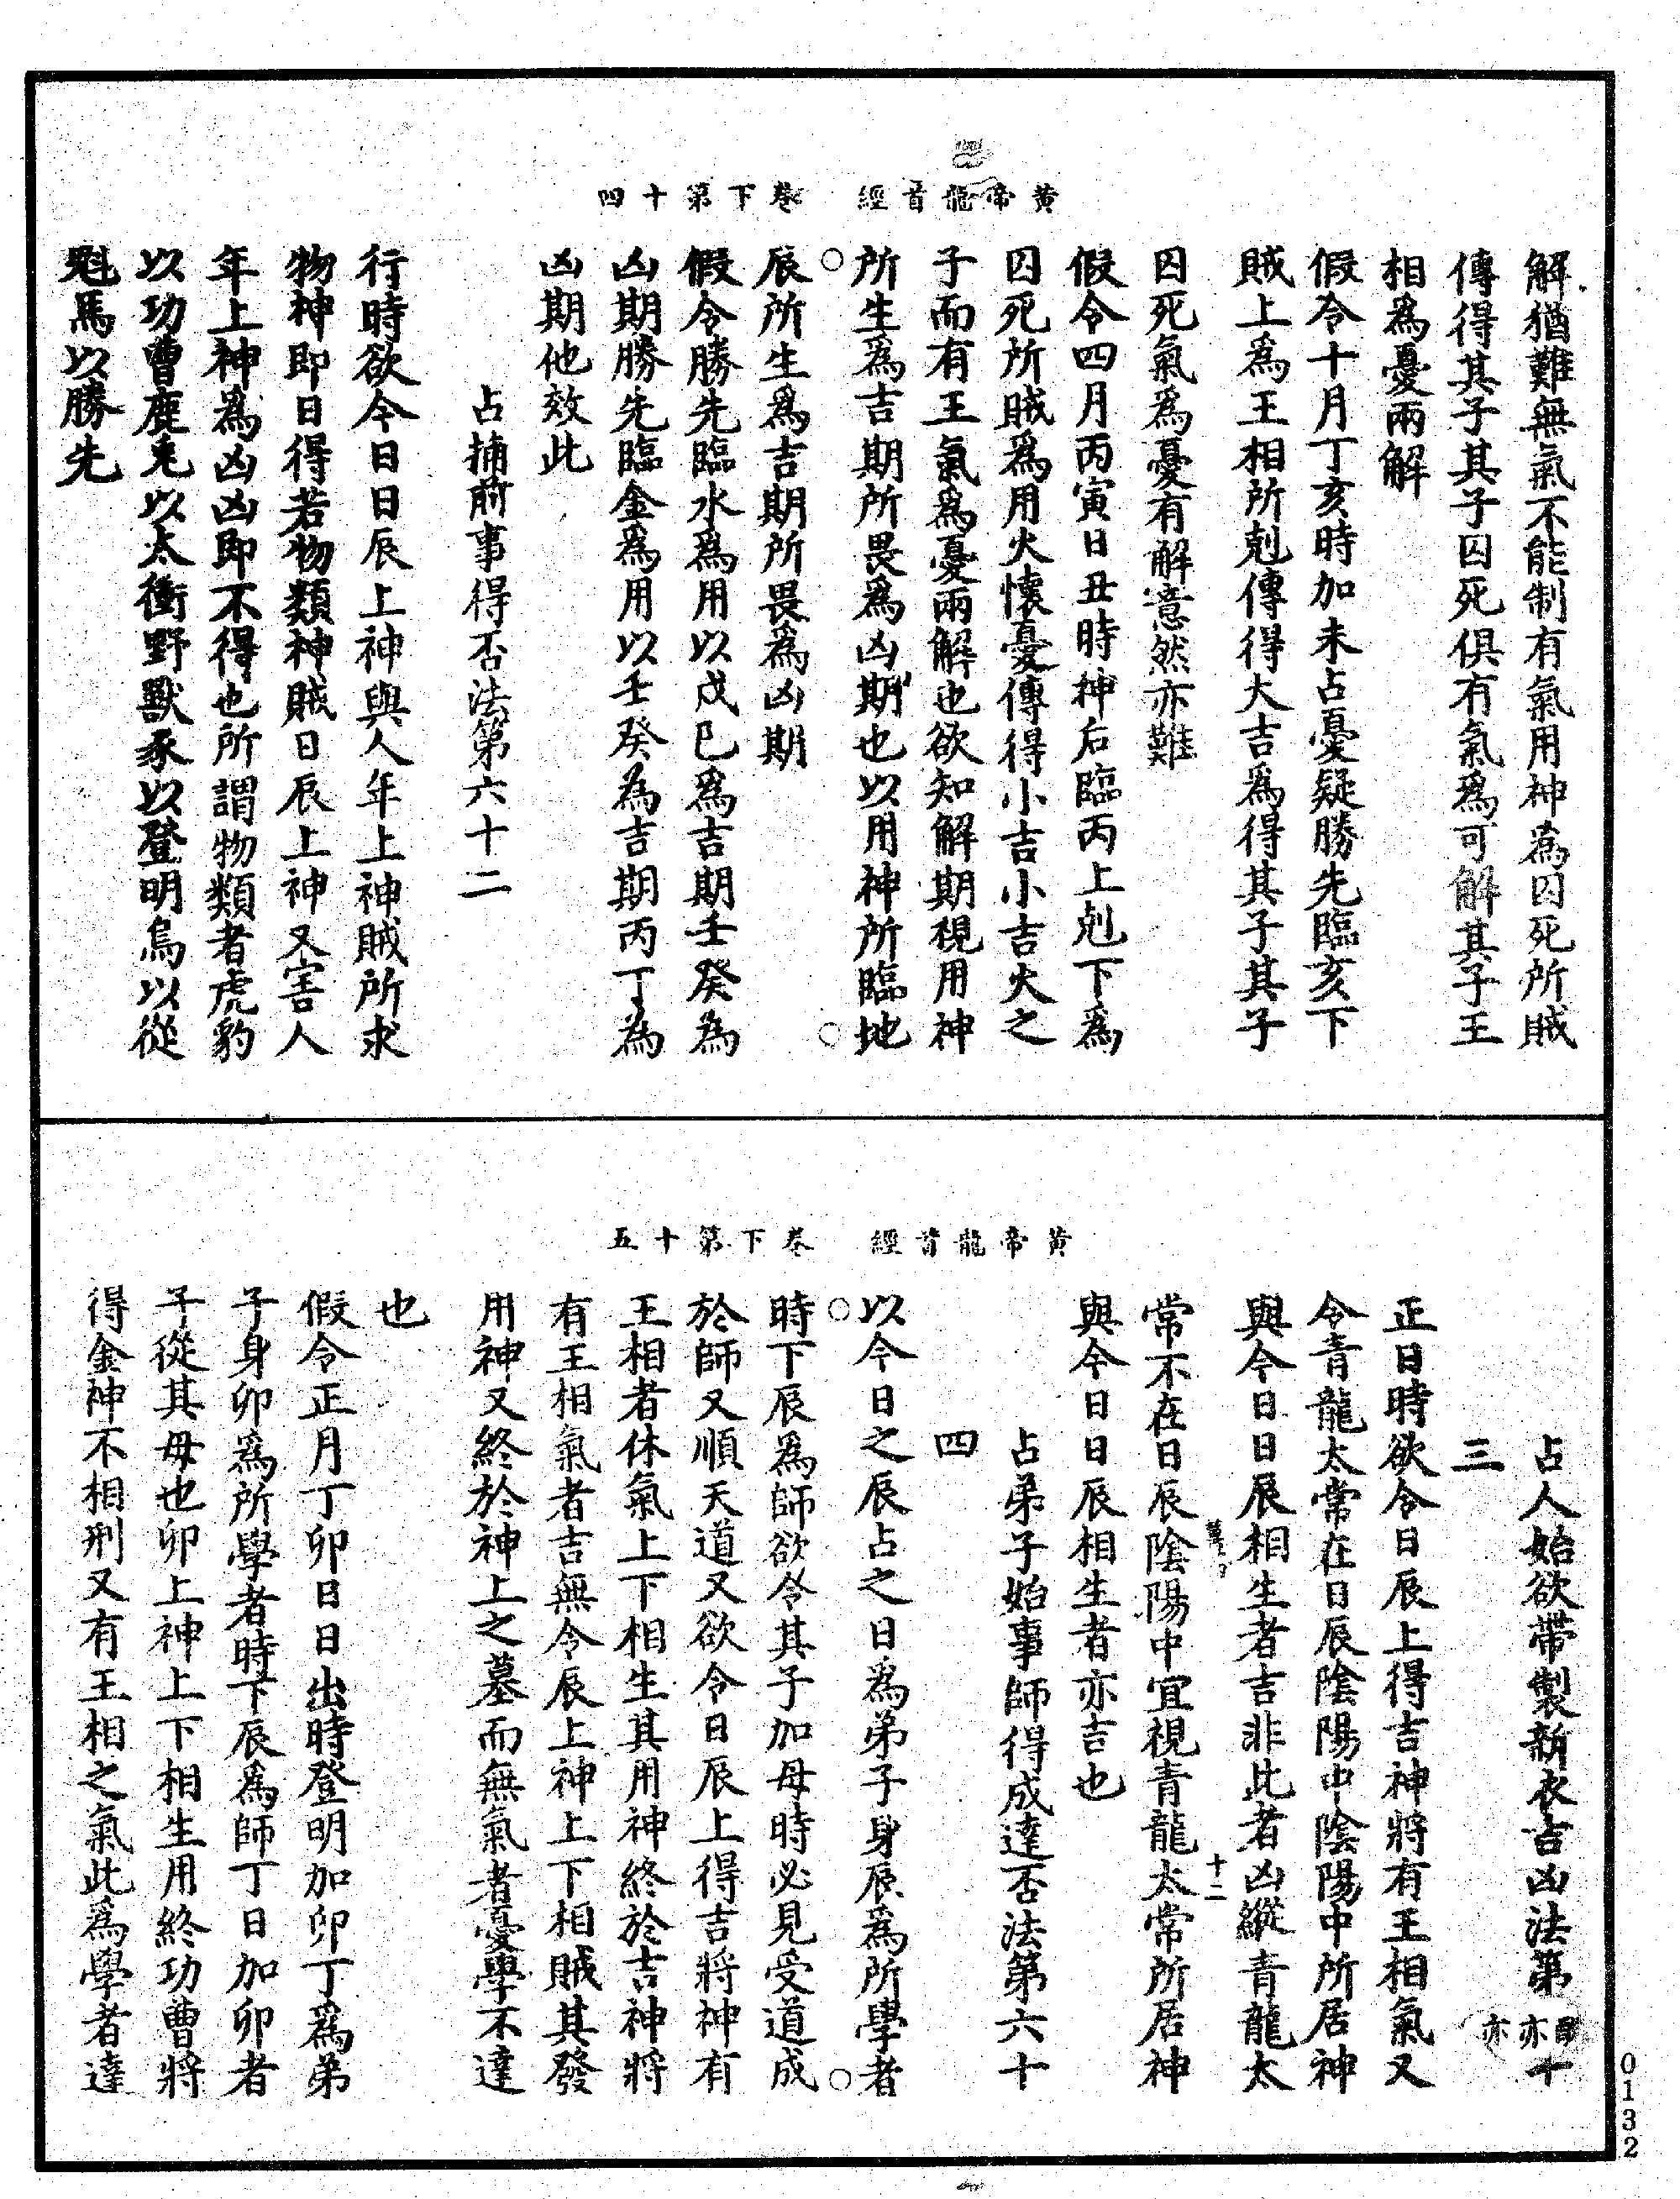 黃帝龍首經　卷下第十四
解猶難無氣不能制有氣用神為囚死所賊
傳得其子其子囚死俱有氣爲可解其子王
相爲憂兩解
假令十月丁亥時加未占憂疑勝先臨亥下
賊上爲王相所剋傳得大吉爲得其子其子
囚死氣爲憂有解意然亦難
假令四月丙寅日丑時神后臨丙上剋下爲
囚死所賊爲用火懷憂傳得小吉小吉火之
子而有王氣爲憂兩解也欲知解期視用神
所生爲吉期所畏爲凶期也以用神所臨地
辰所生爲吉期所畏爲凶期
假令勝先臨水爲用以戊巳爲吉期壬癸為
凶期勝先臨金爲用以壬癸為吉期丙丁為
凶期他效此
占捕前事得否法第六十二
行時欲令日日辰上神與人年上神賊所求
物神即日得若物類神賊日辰上神又害人
年上神爲凶凶即不得也所謂物類者虎豹
以功曹鹿兎以太衝野獸豕以登明烏以從
魁馬以勝先
黃帝龍首經　卷下第十五
占人始欲帶製新衣吉凶法第六十
三
正日時欲令日辰上得吉神將有王相氣又
令青龍太常在日辰陰陽中陰陽中所居神
與今日日辰相生者吉非此者凶縱青龍太
十二
常不在日辰陰陽中宜視青龍太常所居神
與今日日辰相生者亦吉也
占弟子始事師得成達否法第六十
四
以今日之辰占之日爲弟子身辰爲所學者
時下辰爲師欲令其子加母時必見受道成
於師又順天道又欲令日辰上得吉將神有
王相者休氣上下相生其用神終於吉神將
有王相氣者吉無令辰上神上下相賊其發
用神又終於神上之墓而無氣者憂學不達
也
假令正月丁卯日日出時登明加卯丁爲弟
子身卯爲所學者時下辰爲師丁日加卯者
子從其母也卯上神上下相生用終功曹將
得金神不相刑又有王相之氣此爲學者達
0132